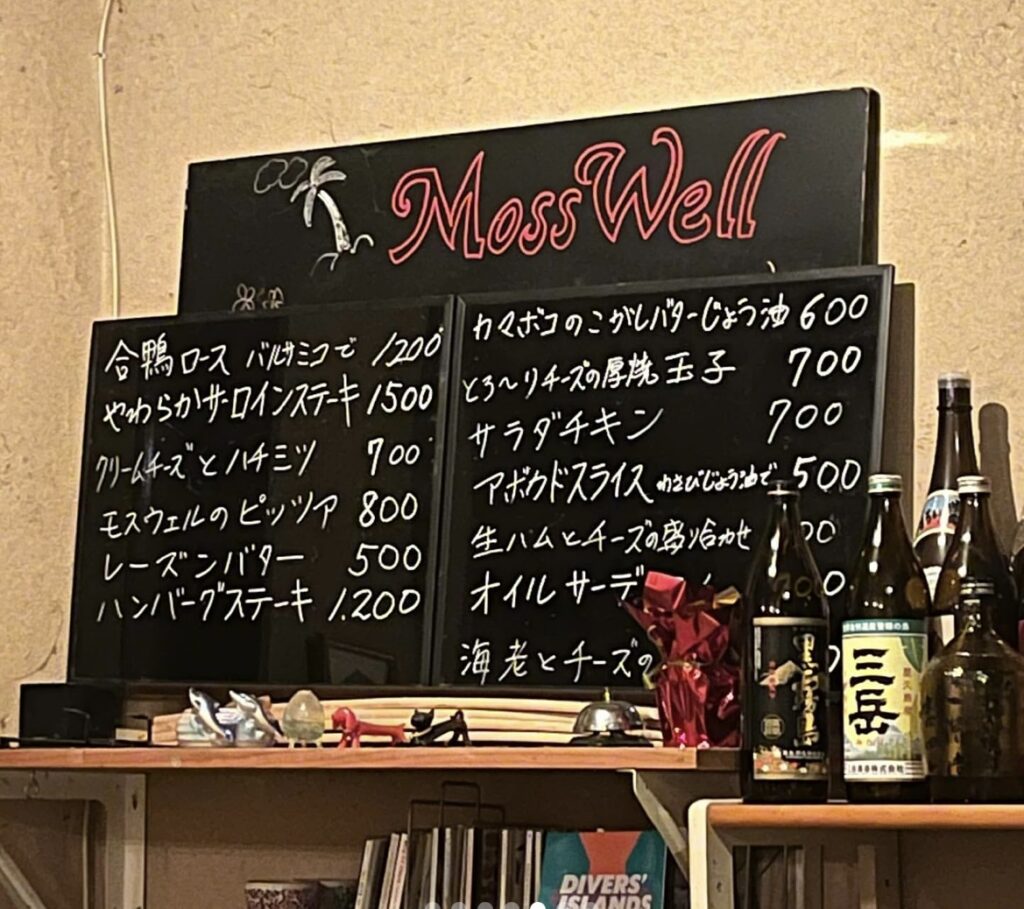 Moss Well
合鴨ロース バルサミコで 1200
やわらかサーロインステーキ 1500
クリームチーズとハチミツ 700
モスウェルのピッツァ 800
レーズンバター 500
ハンバーグステーキ 1.200
カマボコのこがしバターじょう油 600
とろ〜りチーズの厚焼玉子 700
サラダチキン 700
アボカドスライス わさびじょう油で 500
生ハムとチーズの盛り合わせ 00
オイルサーデ
海老とチーズの
三岳
DIVERS'
ISLANDS